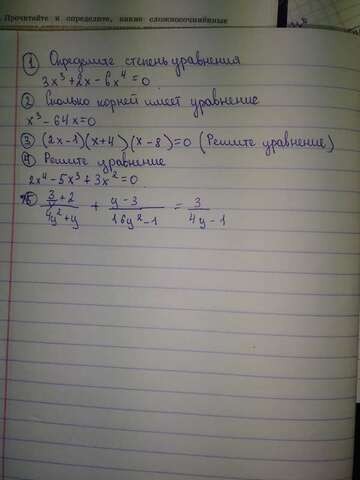 Прочитайте и определите, какие сложносочинённые
① Определите степень уравнения
3x³+2x-6x⁴=0
② Сколько корней имеет уравнение
x³-64x=0
③ (2x-1)(x+4)(x-8)=0 (Решите уравнение)
④ Решите уравнение
2x⁴-5x³+3x²=0
⑤ (3+2)/(4y²+y) + (y-3)/(16y²-1) = 3/(4y-1)